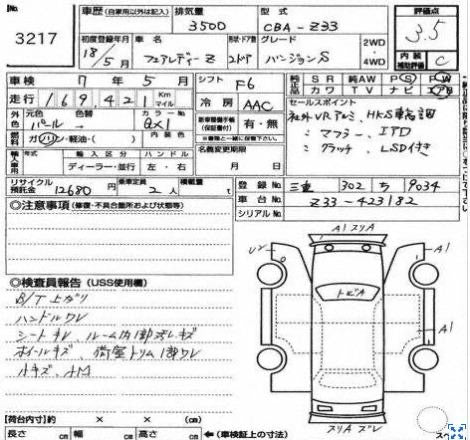 No. 3217
車歴(自家用以外は記入) 排気量 3500 型式 CBA-Z33 評価点 3.5
初度登録年月 18/5月 車名 フェアレディーZ 形状・ドア数 グレード バージョンS 2WD 4WD 内装補助評価 C
車検 7年5月 シフト F6 純正 SR 純AW PS PW
走行 169,421 Km マイル 冷房 AAC 装備品 カワ TV ナビ エアB
外色 元色 パール 色替 カラーNo QX1 内装色 車両整備手帳(保証書付) 有・無 セールスポイント
社外VRアルミ、HKS車輪調
燃料 ガソリン・軽油・( ) 〃 マフラー、ITD
輸入車用 年式 輸入区分 ディーラー・並行 ハンドル 左・右 名義変更期限 月 日 〃 クラッチ、LSD付き
リサイクル預託金 12680円 乗車定員 2人 積載量 t 登録No. 三重 302 ち 9034
車台No. Z33-423182
シリアルNo.
◎注意事項(修復・不具合箇所および状態等)
A1 スリA
U2
A1
トビA
A1
スリA ズレ
◎検査員報告(USS使用欄)
B/T上ガリ
ハンドルワレ
シートキレ ルーム内1部汚レキズ
ホイールキズ、荷室トリム1部ワレ
小キズ、AM
【荷台内寸】約 × × (cm)
長さ cm 幅 cm 高さ cm ←(車検証上の寸法)